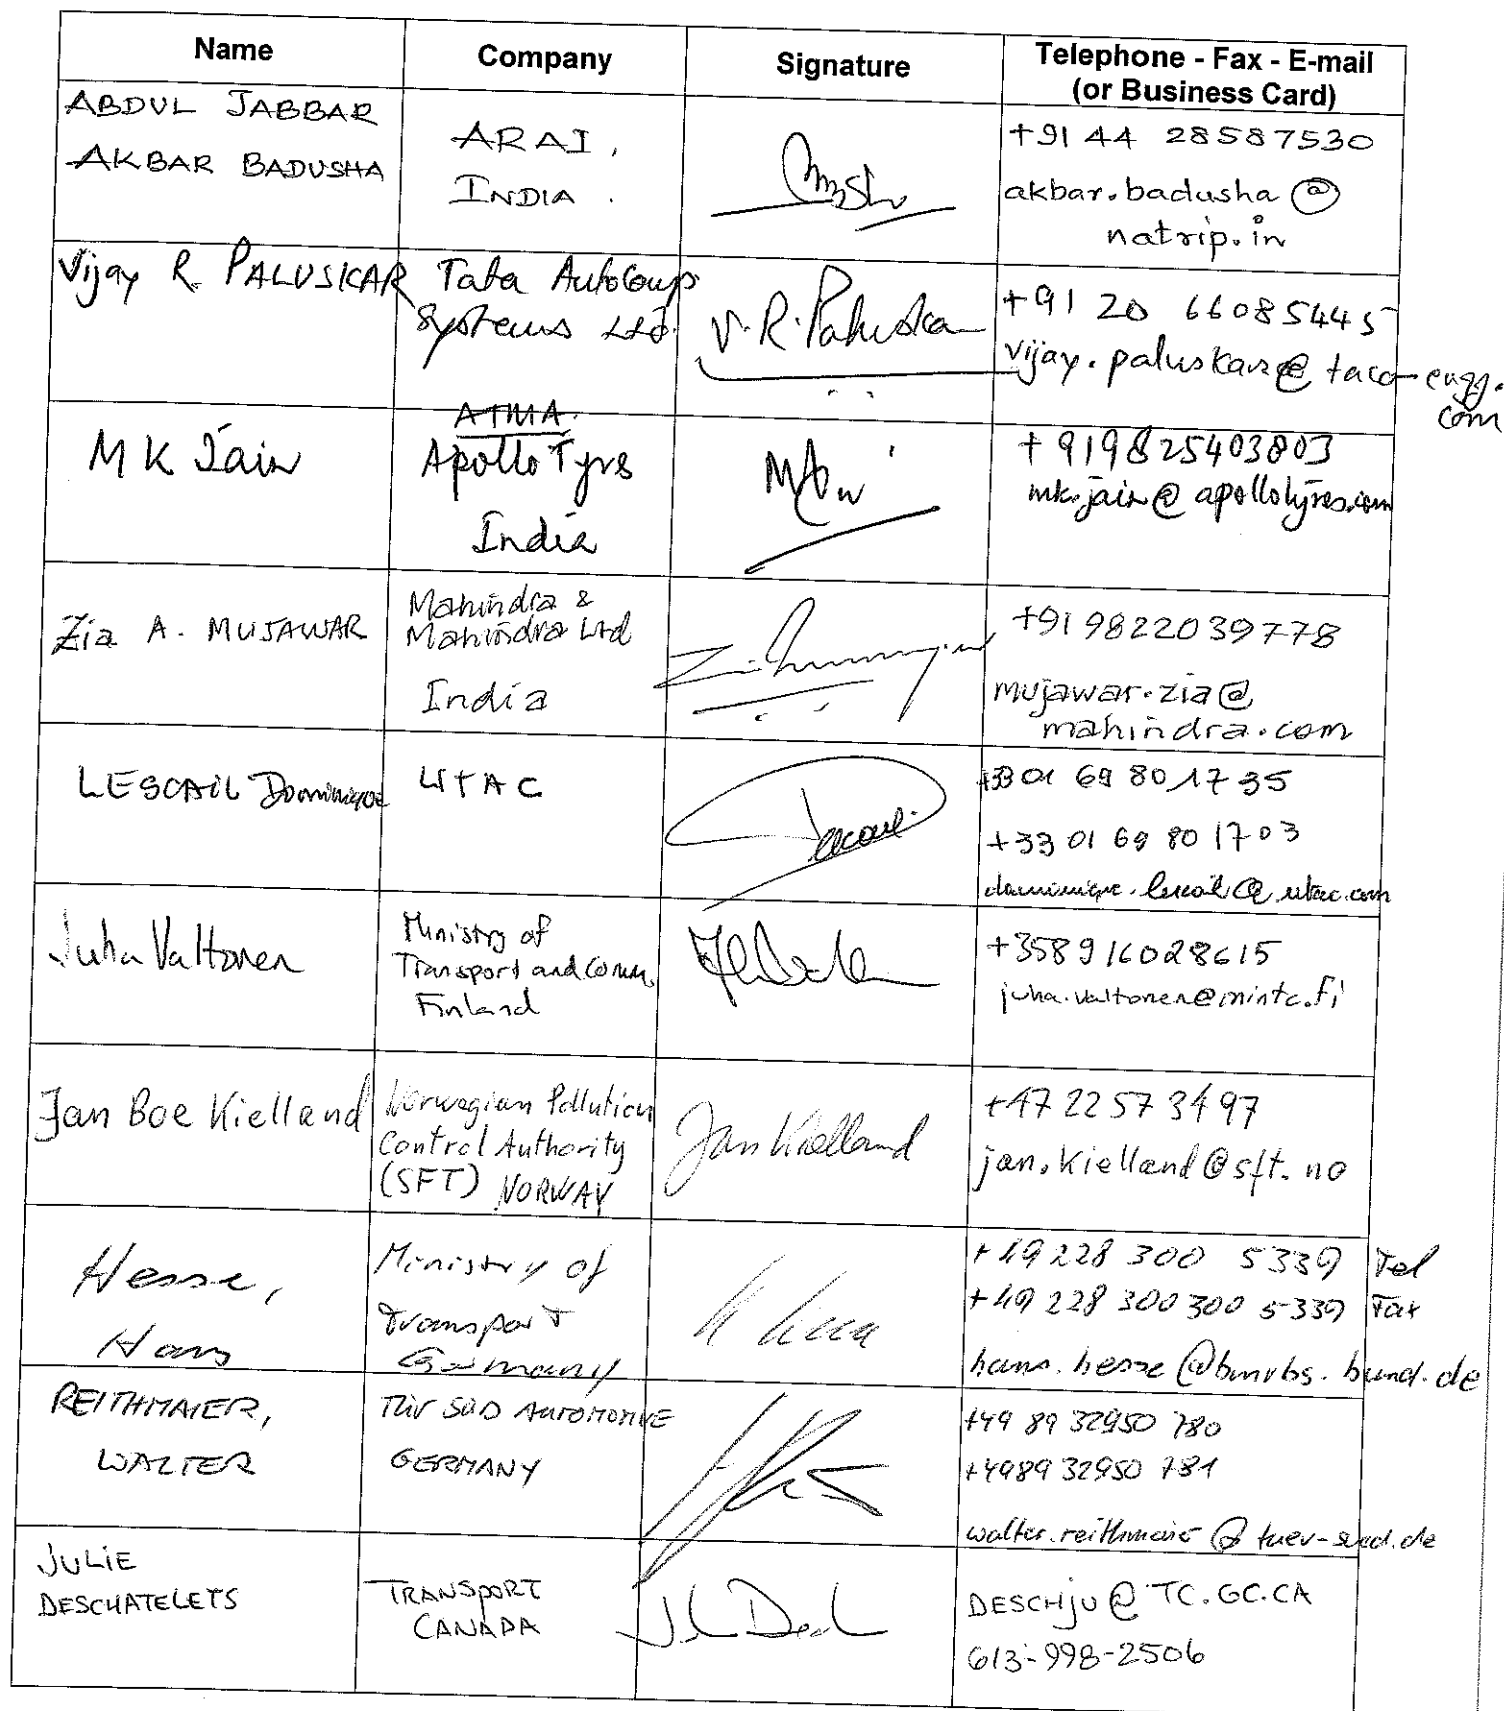 Name Company Signature Telephone - Fax - E-mail
(or Business Card)
ABDUL JABBAR
AKBAR BADUSHA
ARAI,
INDIA.
+91 44 28587530
akbar.badusha@
natrip.in
Vijay R. PALUSKAR
Tata AutoComp
Systems Ltd.
V.R.Paluskar
+91 20 66085445
vijay.paluskar@taco-engg.
com
MK Jain
ATMA.
Apollo Tyrs
India
+919825403803
mk.jain@apollotyres.com
Zia A. MUJAWAR
Mahindra &
Mahindra Ltd
India
+919822039778
mujawar.zia@
mahindra.com
LESCAIL Dominique
UTAC
+33 01 69 80 17 35
+33 01 69 80 17 03
dominique.lescail@utac.com
Juha Valtonen
Ministry of
Transport and Comm.
Finland
+358 9 16028615
juha.valtonen@mintc.fi
Jan Boe Kielland
Norwegian Pollution
Control Authority
(SFT) NORWAY
Jan Kielland
+47 22 57 34 97
jan.kielland@sft.no
Hesse,
Hans
Ministry of
Transport
Germany
+49 228 300 5339 Tel
+49 228 300 300 5339 Fax
hans.hesse@bmvbs.bund.de
REITHMAIER,
WALTER
TÜV SÜD AUTOMOTIVE
GERMANY
+49 89 32950 780
+4989 32950 781
walter.reithmaier@tuev-sued.de
JULIE
DESCHATELETS
TRANSPORT
CANADA
DESCHJU@TC.GC.CA
613-998-2506